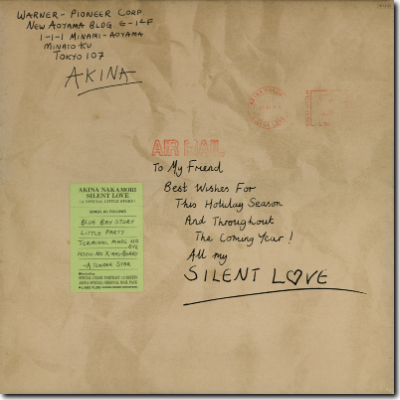 WARNER-PIONEER CORP
NEW AOYAMA BLDG E-14F
1-1-1 MINAMI-AOYAMA
MINATO KU
TOKYO 107
AKINA
AIR MAIL
To My Friend
Best Wishes For
This Holiday Season
And Throughout
The Coming Year!
All my
SILENT LOVE
AKINA NAKAMORI
SILENT LOVE
BLUE BAY STORY
LITTLE PARTY
A TENDER STAR